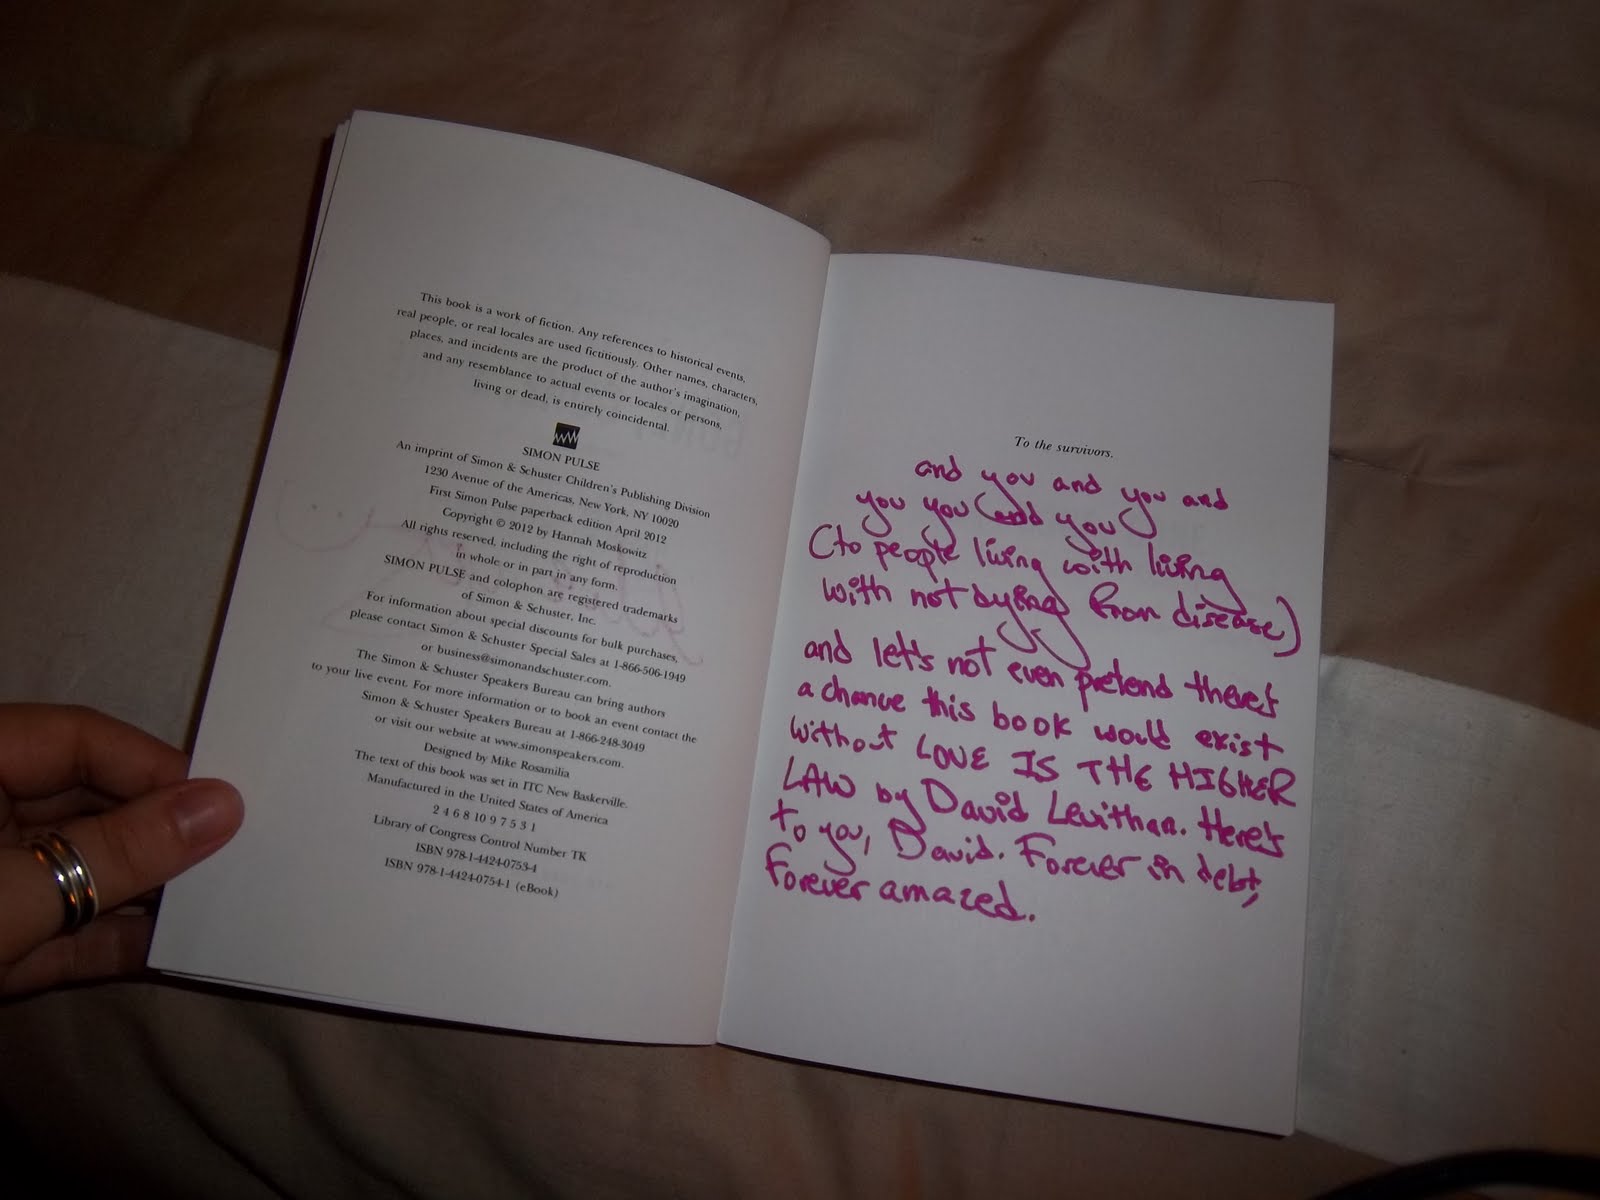 This book is a work of fiction. Any references to historical events,
real people, or real locales are used fictitiously. Other names, characters,
places, and incidents are the product of the author's imagination,
and any resemblance to actual events or locales or persons,
living or dead, is entirely coincidental.
SIMON PULSE
An imprint of Simon & Schuster Children's Publishing Division
1230 Avenue of the Americas, New York, NY 10020
First Simon Pulse paperback edition April 2012
Copyright © 2012 by Hannah Moskowitz
All rights reserved, including the right of reproduction
in whole or in part in any form.
SIMON PULSE and colophon are registered trademarks
of Simon & Schuster, Inc.
For information about special discounts for bulk purchases,
please contact Simon & Schuster Special Sales at 1-866-506-1949
or business@simonandschuster.com.
The Simon & Schuster Speakers Bureau can bring authors
to your live event. For more information or to book an event contact the
Simon & Schuster Speakers Bureau at 1-866-248-3049
or visit our website at www.simonspeakers.com.
Designed by Mike Rosamilia
The text of this book was set in ITC New Baskerville.
Manufactured in the United States of America
2 4 6 8 10 9 7 5 3 1
Library of Congress Control Number TK
ISBN 978-1-4424-0753-4
ISBN 978-1-4424-0754-1 (eBook)
To the survivors.
and you and you and
you you and you
(to people living with living
with not dying from disease)
and let's not even pretend there's
a chance this book would exist
without LOVE IS THE HIGHER
LAW by David Levithan. Here's
to you, David. Forever in debt,
forever amazed.